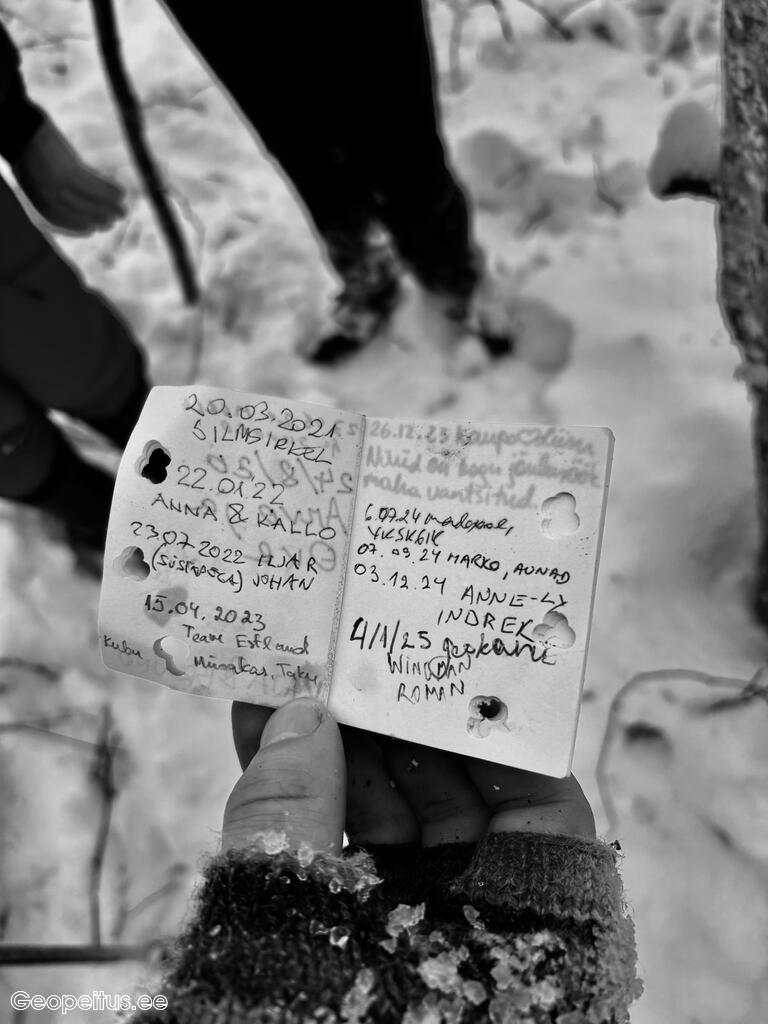 20.03.2021
SILMSIRKEL
22.01.22
ANNA & KALLO
23.07.2022 ILJAR
JOHAN
15.04.2023
Team Estland
Kubu
26.12.23 Kaupo♡Liim
Nüüd on kogu jõulumööt
maha vantsitud.
6.07.24
YKSKÕIK
07.09.24 MARKO, AUNAD
03.12.24 ANNE-LY
INDREK
4/1/25 geokani
WINGMAN
ROMAN
Geopeitus.ee